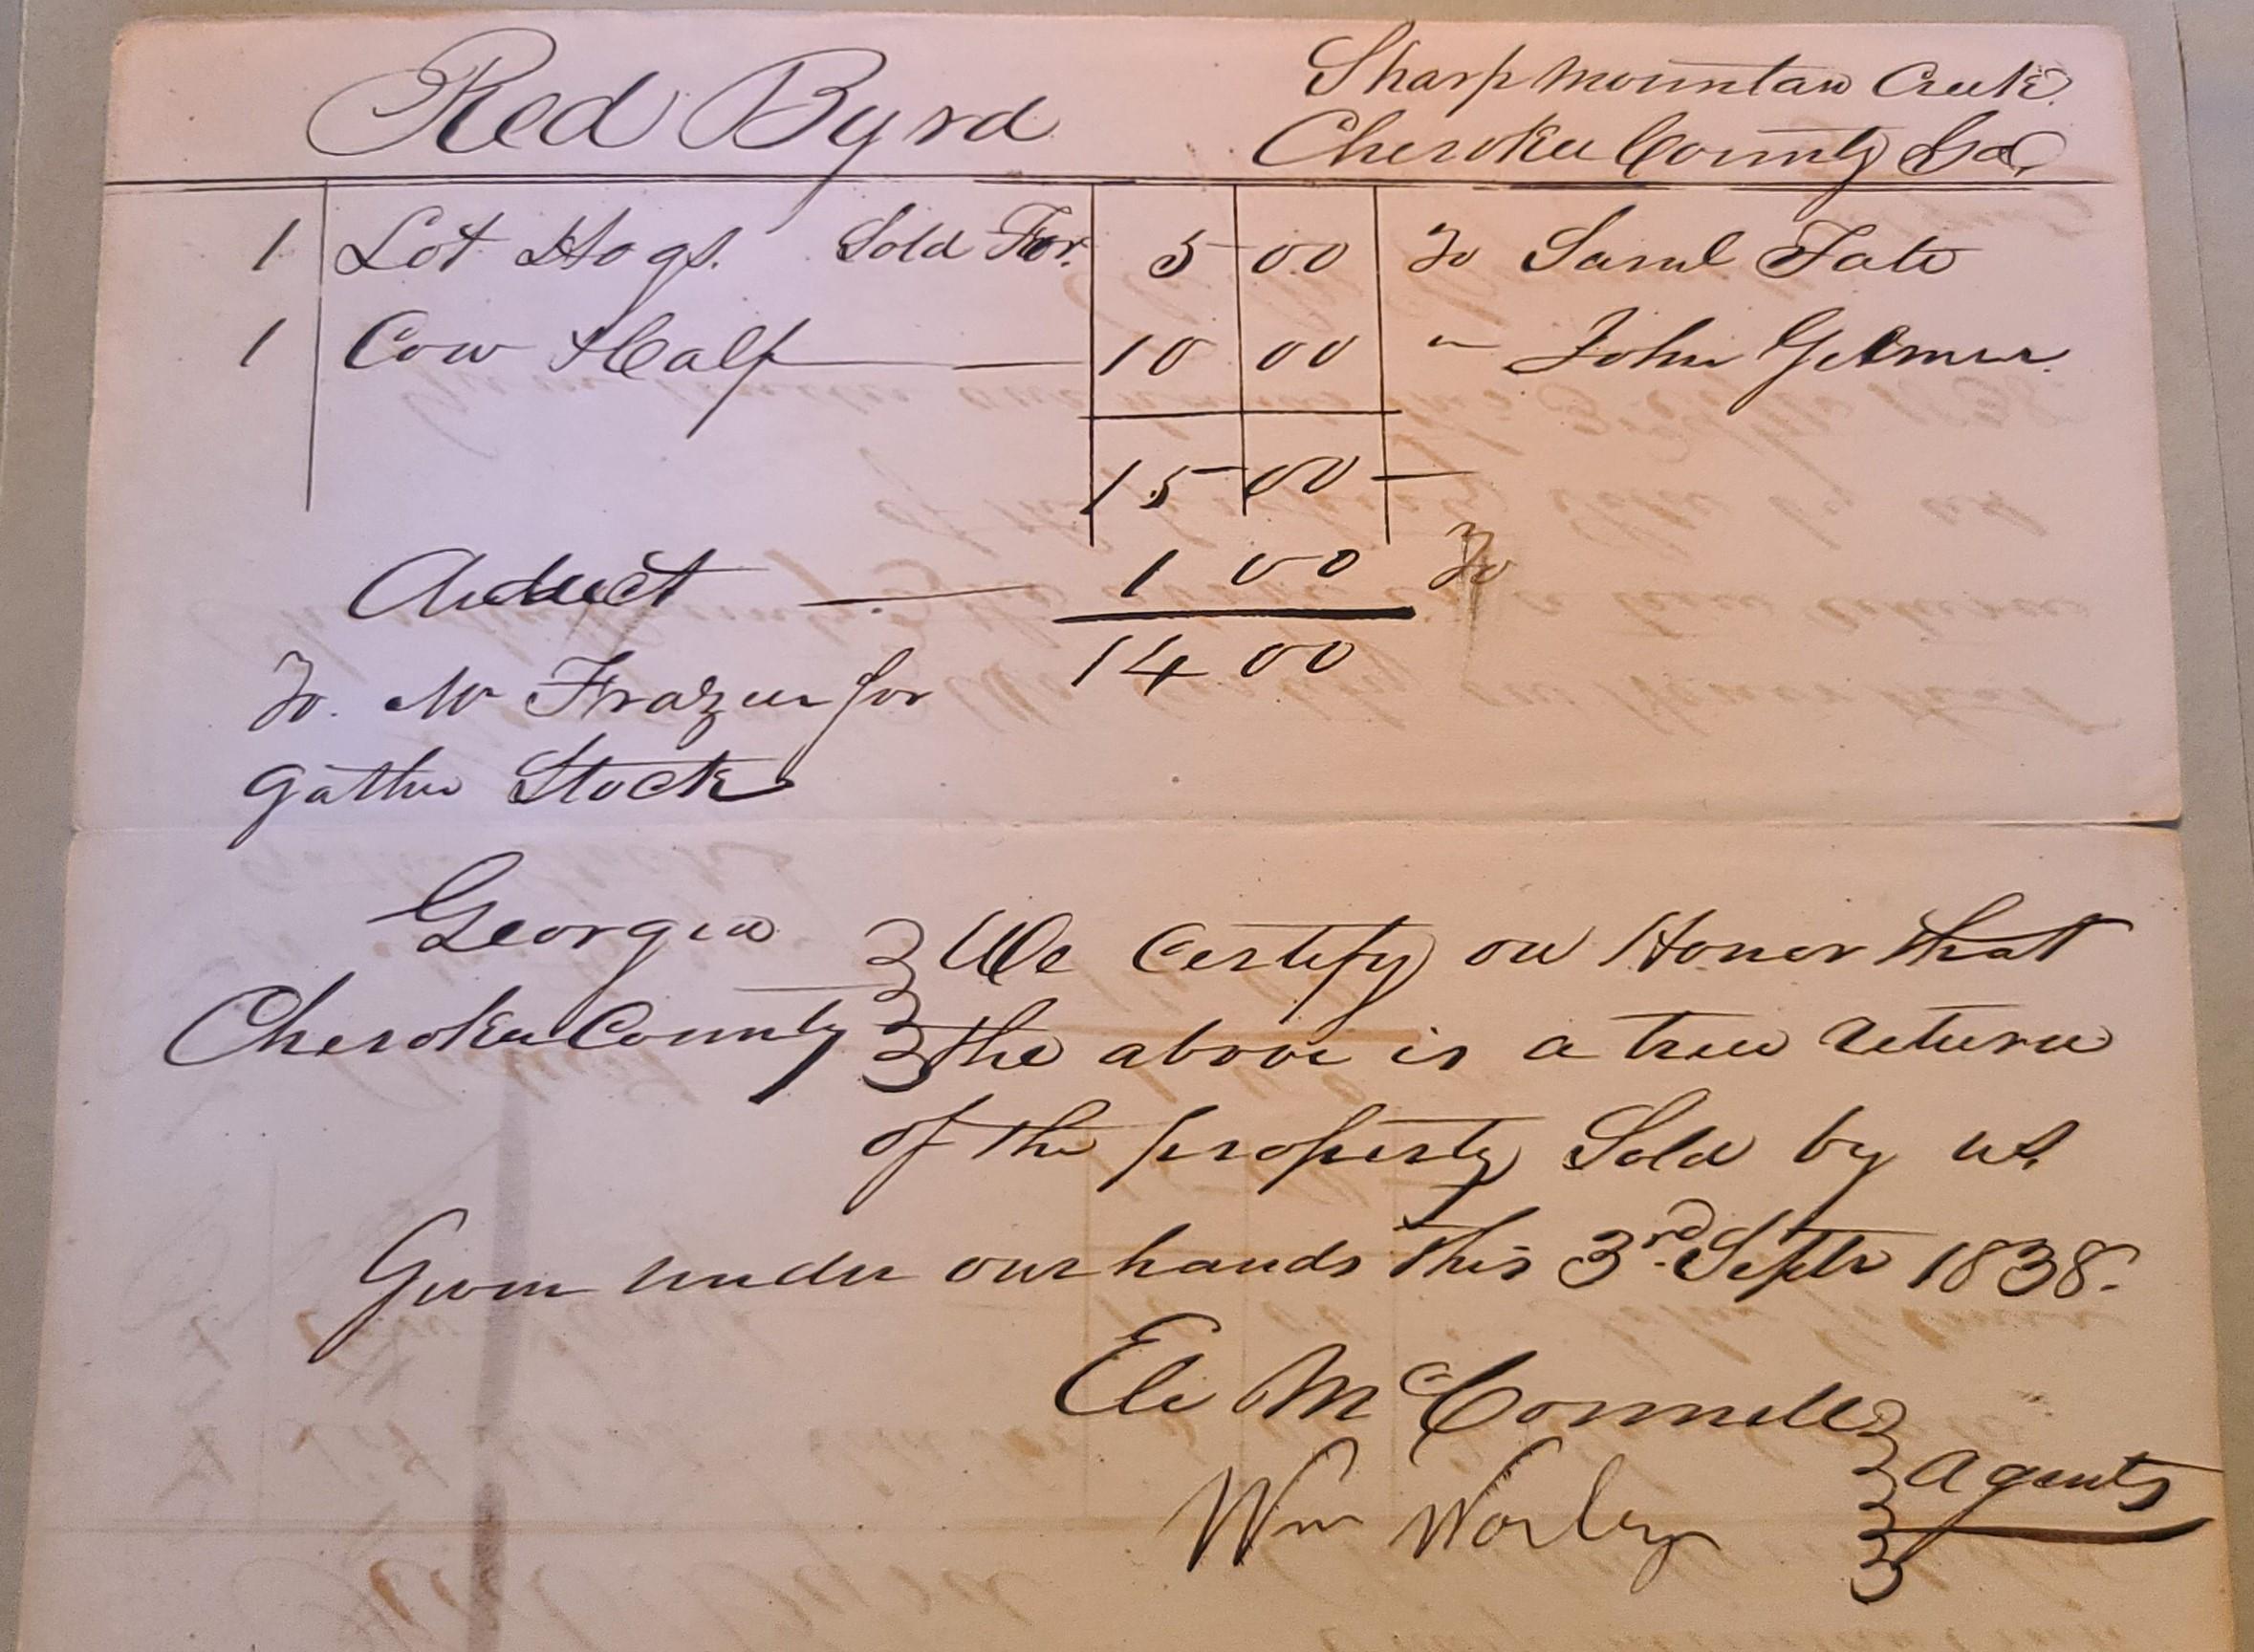 Red Byrd
Sharp Mountain Creek
Cherokee County Ga
1 Lot Hogs. Sold For. 5 00 To Saml Tate
1 Cow & Calf 10 00 " John Gilmer
15 00
Deduct 1 00 To
14 00
To. Mr Frazier for
gather Stock
Georgia
Cherokee County
We Certify on Honor that
the above is a true return
of the property Sold by us
Given under our hands this 3rd. Septr 1838.
Eli McConnell
Wm Worley
Agents